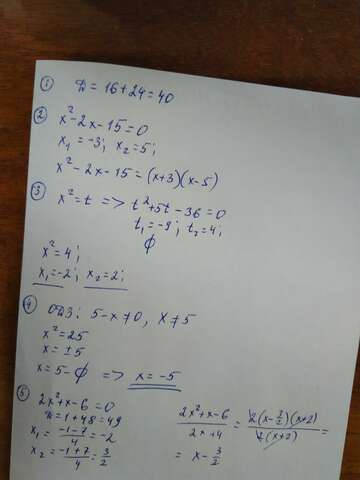 ① D = 16 + 24 = 40
② x² - 2x - 15 = 0
x₁ = -3; x₂ = 5;
x² - 2x - 15 = (x+3)(x-5)
③ x² = t => t² + 5t - 36 = 0
t₁ = -9; t₂ = 4;
φ
x² = 4;
x₁ = -2; x₂ = 2;
④ ОДЗ: 5 - x ≠ 0, x ≠ 5
x² = 25
x = ±5
x = 5 - φ => x = -5
⑤ 2x² + x - 6 = 0
D = 1 + 48 = 49
x₁ = (-1-7)/4 = -2
x₂ = (-1+7)/4 = 3/2
(2x² + x - 6)/(2x + 4) = (2(x - 3/2)(x+2))/(2(x+2)) =
= x - 3/2